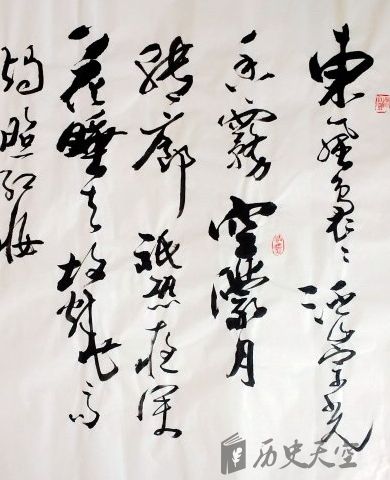 東風裊〻泛崇光
香霧空濛月
轉廊祇恐夜深
花睡去故燒高
燭照紅妝
历史天空